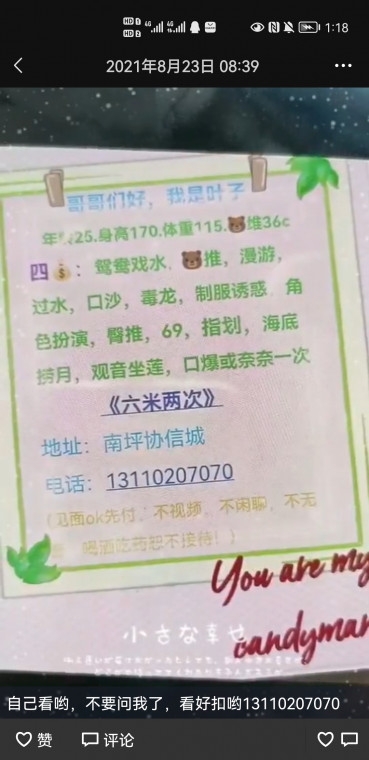 1:18
2021年8月23日 08:39
哥哥们好，我是叶子
25.身高170.体重115.🐻堆36c
四💰：鸳鸯戏水，🐻推，漫游，
过水，口沙，毒龙，制服诱惑 角
色扮演，臀推，69，指划，海底
捞月，观音坐莲，口爆或奈奈一次
《六米两次》
地址：南坪协信城
电话：13110207070
（见面ok先付，不视频，不闲聊，不无
喝酒吃药恕不接待！）
You are my
candyman
小さな幸せ
自己看哟，不要问我了，看好扣哟13110207070
赞 评论